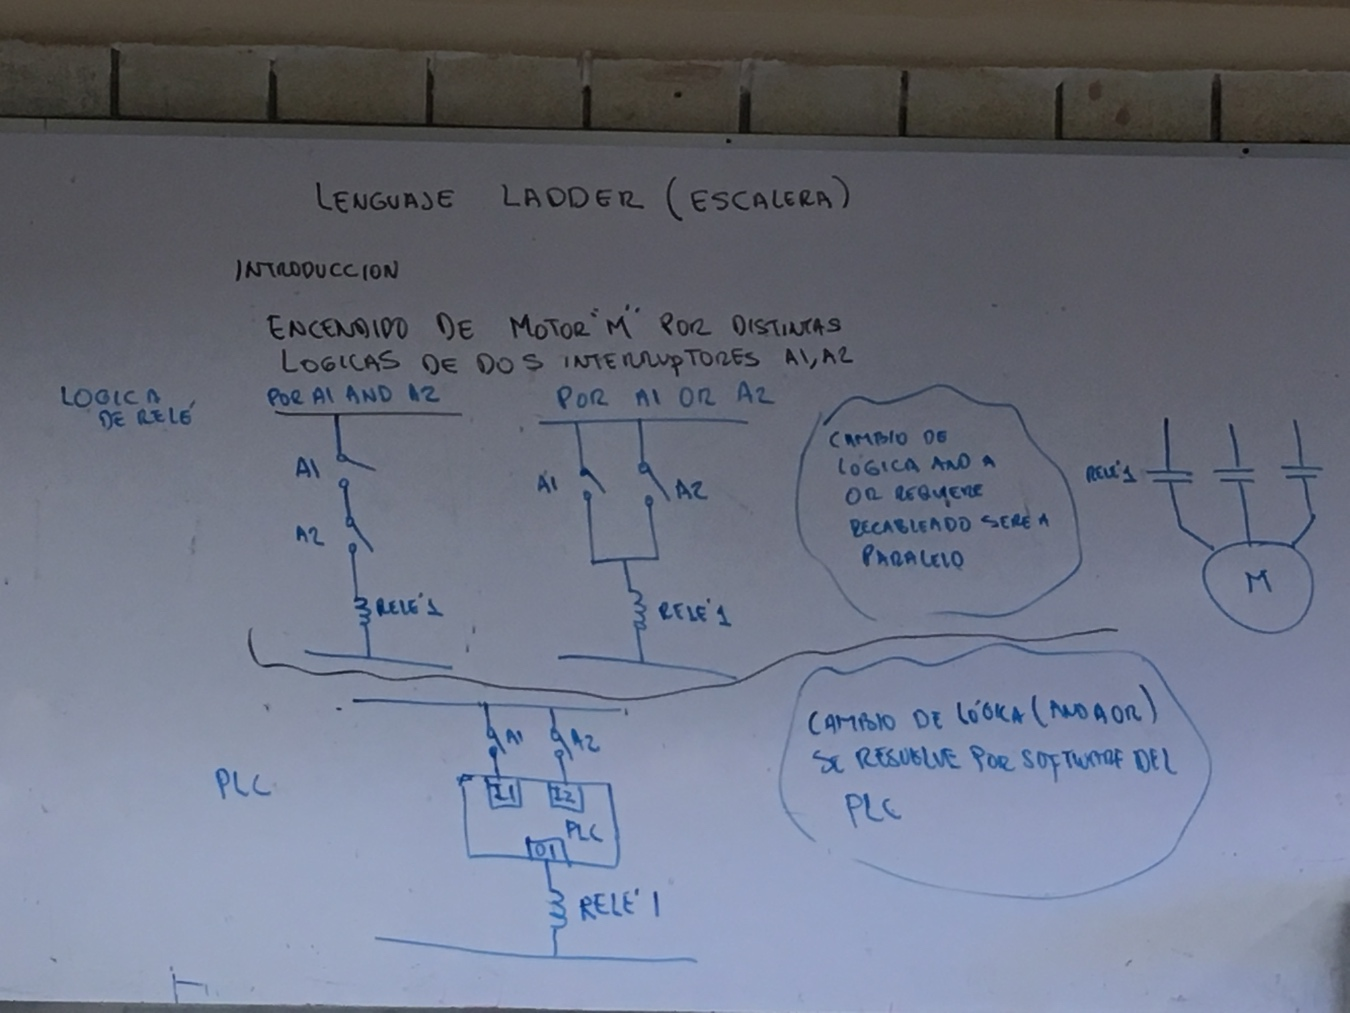 LENGUAJE LADDER (ESCALERA)
INTRODUCCION
ENCENDIDO DE MOTOR "M" POR DISTINTAS
LOGICAS DE DOS INTERRUPTORES A1, A2
LOGICA
DE RELÉ
POR A1 AND A2
A1
A2
RELÉ 1
POR A1 OR A2
A1
A2
RELÉ 1
CAMBIO DE
LOGICA AND A
OR REQUIERE
RECABLEADO SERE A
PARALELO
RELÉ 1
M
PLC
A1
A2
I1
I2
PLC
O1
RELÉ 1
CAMBIO DE LÓGICA (AND A OR)
SE RESUELVE POR SOFTWARE DEL
PLC